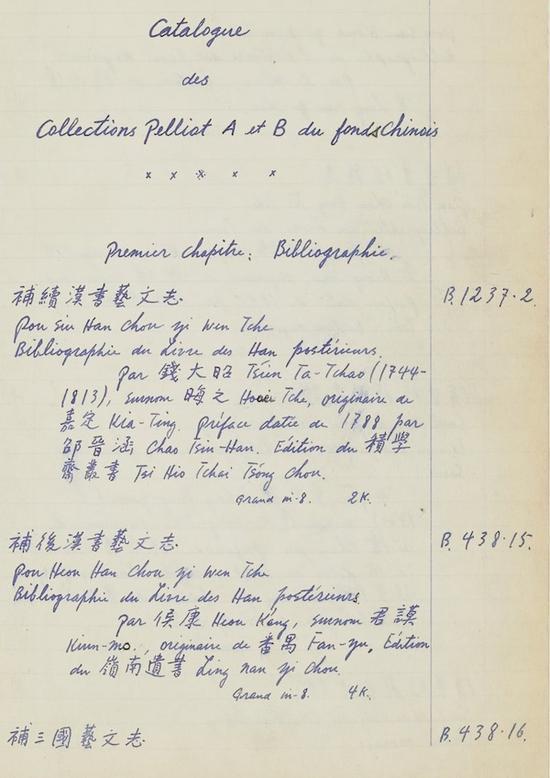 Catalogue
des
Collections Pelliot A et B du fonds Chinois
x x x x x
Premier chapitre: Bibliographie.
補續漢書藝文志 B.1237.2.
Pou Siu Han Chou yi wen Tche
Bibliographie du Livre des Han postérieurs.
par 錢大昭 Ts'ien Ta-Tchao (1744-
1813), surnom 晦之 Houei Tche, originaire de
嘉定 Kia-Ting. Préface datée de 1788 par
邵晉涵 Chao Tsin-Han. Edition du 積學
齋叢書 Tsi Hio Tchai Ts'ong Chou.
Grand in-8. 2K.
補後漢書藝文志 B.438.15.
Pou Heou Han Chou yi wen Tche
Bibliographie du Livre des Han postérieurs
par 侯康 Heou K'ang, surnom 君謨
Kiun-mo., originaire de 番禺 Fan-yu, Edition
du 嶺南遺書 Ling nan yi Chou.
Grand in-8. 4K.
補三國藝文志 B.438.16.